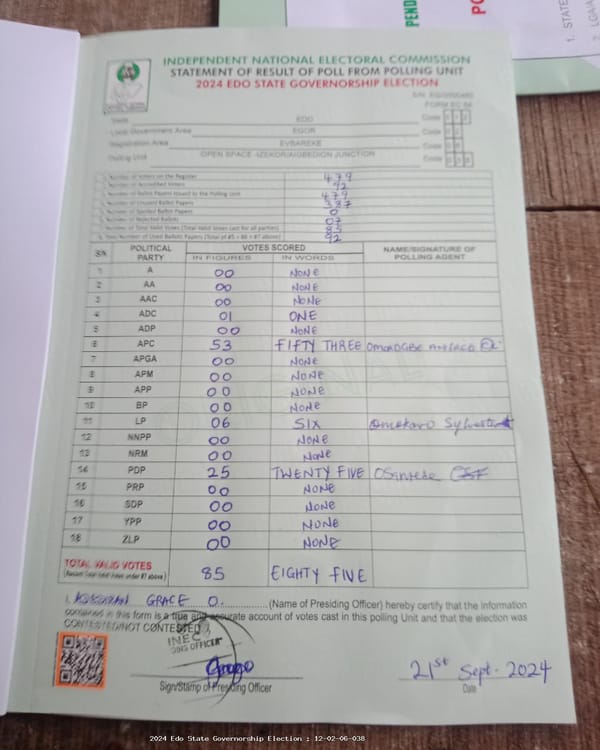 INDEPENDENT NATIONAL ELECTORAL COMMISSION
STATEMENT OF RESULT OF POLL FROM POLLING UNIT
2024 EDO STATE GOVERNORSHIP ELECTION
FORM EC 8A
State EDO Code
Local Government Area EGOR Code
Registration Area EVBAREKE Code
Polling Unit OPEN SPACE -IZEKOR/AIGBEDION JUNCTION Code
Number of Voters on the Register 479
Number of Accredited Voters 92
Number of Ballot Papers Issued to the Polling Unit 479
Number of Unused Ballot Papers 387
Number of Spoiled Ballot Papers 0
Number of Rejected Ballots 07
Number of Total Valid Votes (Total Valid Votes cast for all parties) 85
Total Number of Used Ballot Papers (Total of #5 + #6 + #7 above) 92
S/N POLITICAL PARTY VOTES SCORED NAME/SIGNATURE OF POLLING AGENT
IN FIGURES IN WORDS
1 A 00 NONE
2 AA 00 NONE
3 AAC 00 NONE
4 ADC 01 ONE
5 ADP 00 NONE
6 APC 53 FIFTY THREE
7 APGA 00 NONE
8 APM 00 NONE
9 APP 00 NONE
10 BP 00 NONE
11 LP 06 SIX Sylvester
12 NNPP 00 NONE
13 NRM 00 NONE
14 PDP 25 TWENTY FIVE
15 PRP 00 NONE
16 SDP 00 NONE
17 YPP 00 NONE
18 ZLP 00 NONE
TOTAL VALID VOTES 85 EIGHTY FIVE
I, GRACE O. (Name of Presiding Officer) hereby certify that the information
contained in this form is a true and accurate account of votes cast in this polling Unit and that the election was
CONTESTED/NOT CONTESTED
INEC
OFFICER
Sign/Stamp of Presiding Officer
21st Sept. 2024
Date
2024 Edo State Governorship Election : 12-02-06-038